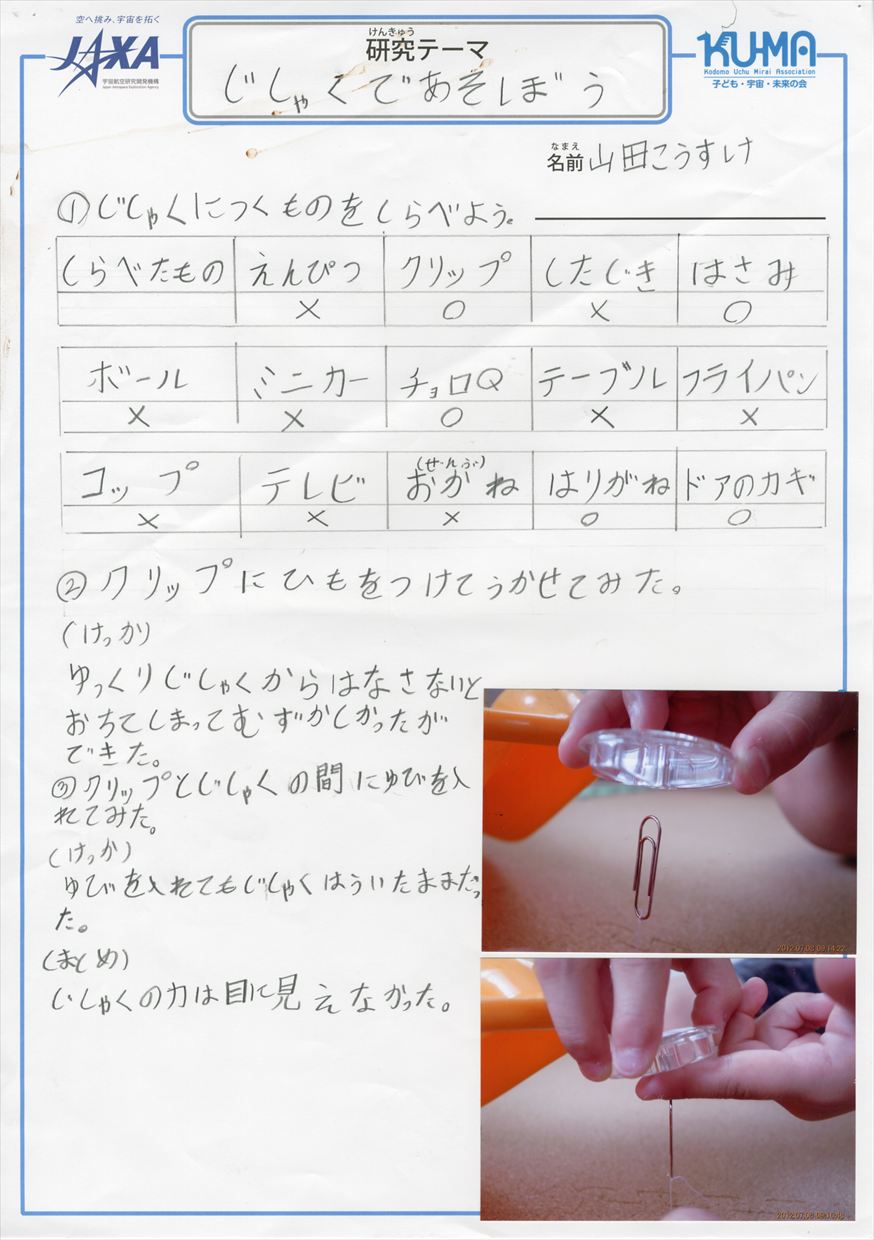 空へ挑み、宇宙を拓く
JAXA
宇宙航空研究開発機構
Japan Aerospace Exploration Agency
けんきゅう
研究テーマ
じしゃくであそぼう
KU-MA
Kodomo Uchu Mirai Association
子ども・宇宙・未来の会
なまえ
名前 山田こうすけ
①じしゃくにつくものをしらべよう。
しらべたもの えんぴつ クリップ したじき はさみ
× ○ × ○
ボール ミニカー チョロQ テーブル フライパン
× × ○ × ×
コップ テレビ おかね(ぜんぶ) はりがね ドアのカギ
× × × ○ ○
②クリップにひもをつけてうかせてみた。
(けっか)
ゆっくりじしゃくからはなさないと
おちてしまってむずかしかったが
できた。
③クリップとじしゃくの間にゆびを入
れてみた。
(けっか)
ゆびを入れてもじしゃくはういたままだっ
た。
(まとめ)
じしゃくの力は目に見えなかった。
2012.07.08 09:14:22
2012.07.08 09:16:48